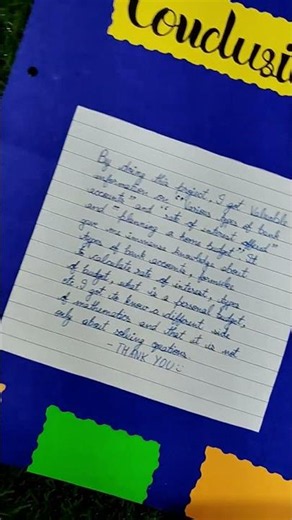 Conclusi
By doing this project, I got valuable
information on "various types of bank
accounts" and "rate of interest offered"
and "planning a home budget". It
gave me immense knowledge about
types of bank accounts, formulas
to calculate rate of interest, types
of budget, what is a personal budget,
etc. I got to know a different side
of mathematics and that it is not
only about solving questions.
- THANK YOU: